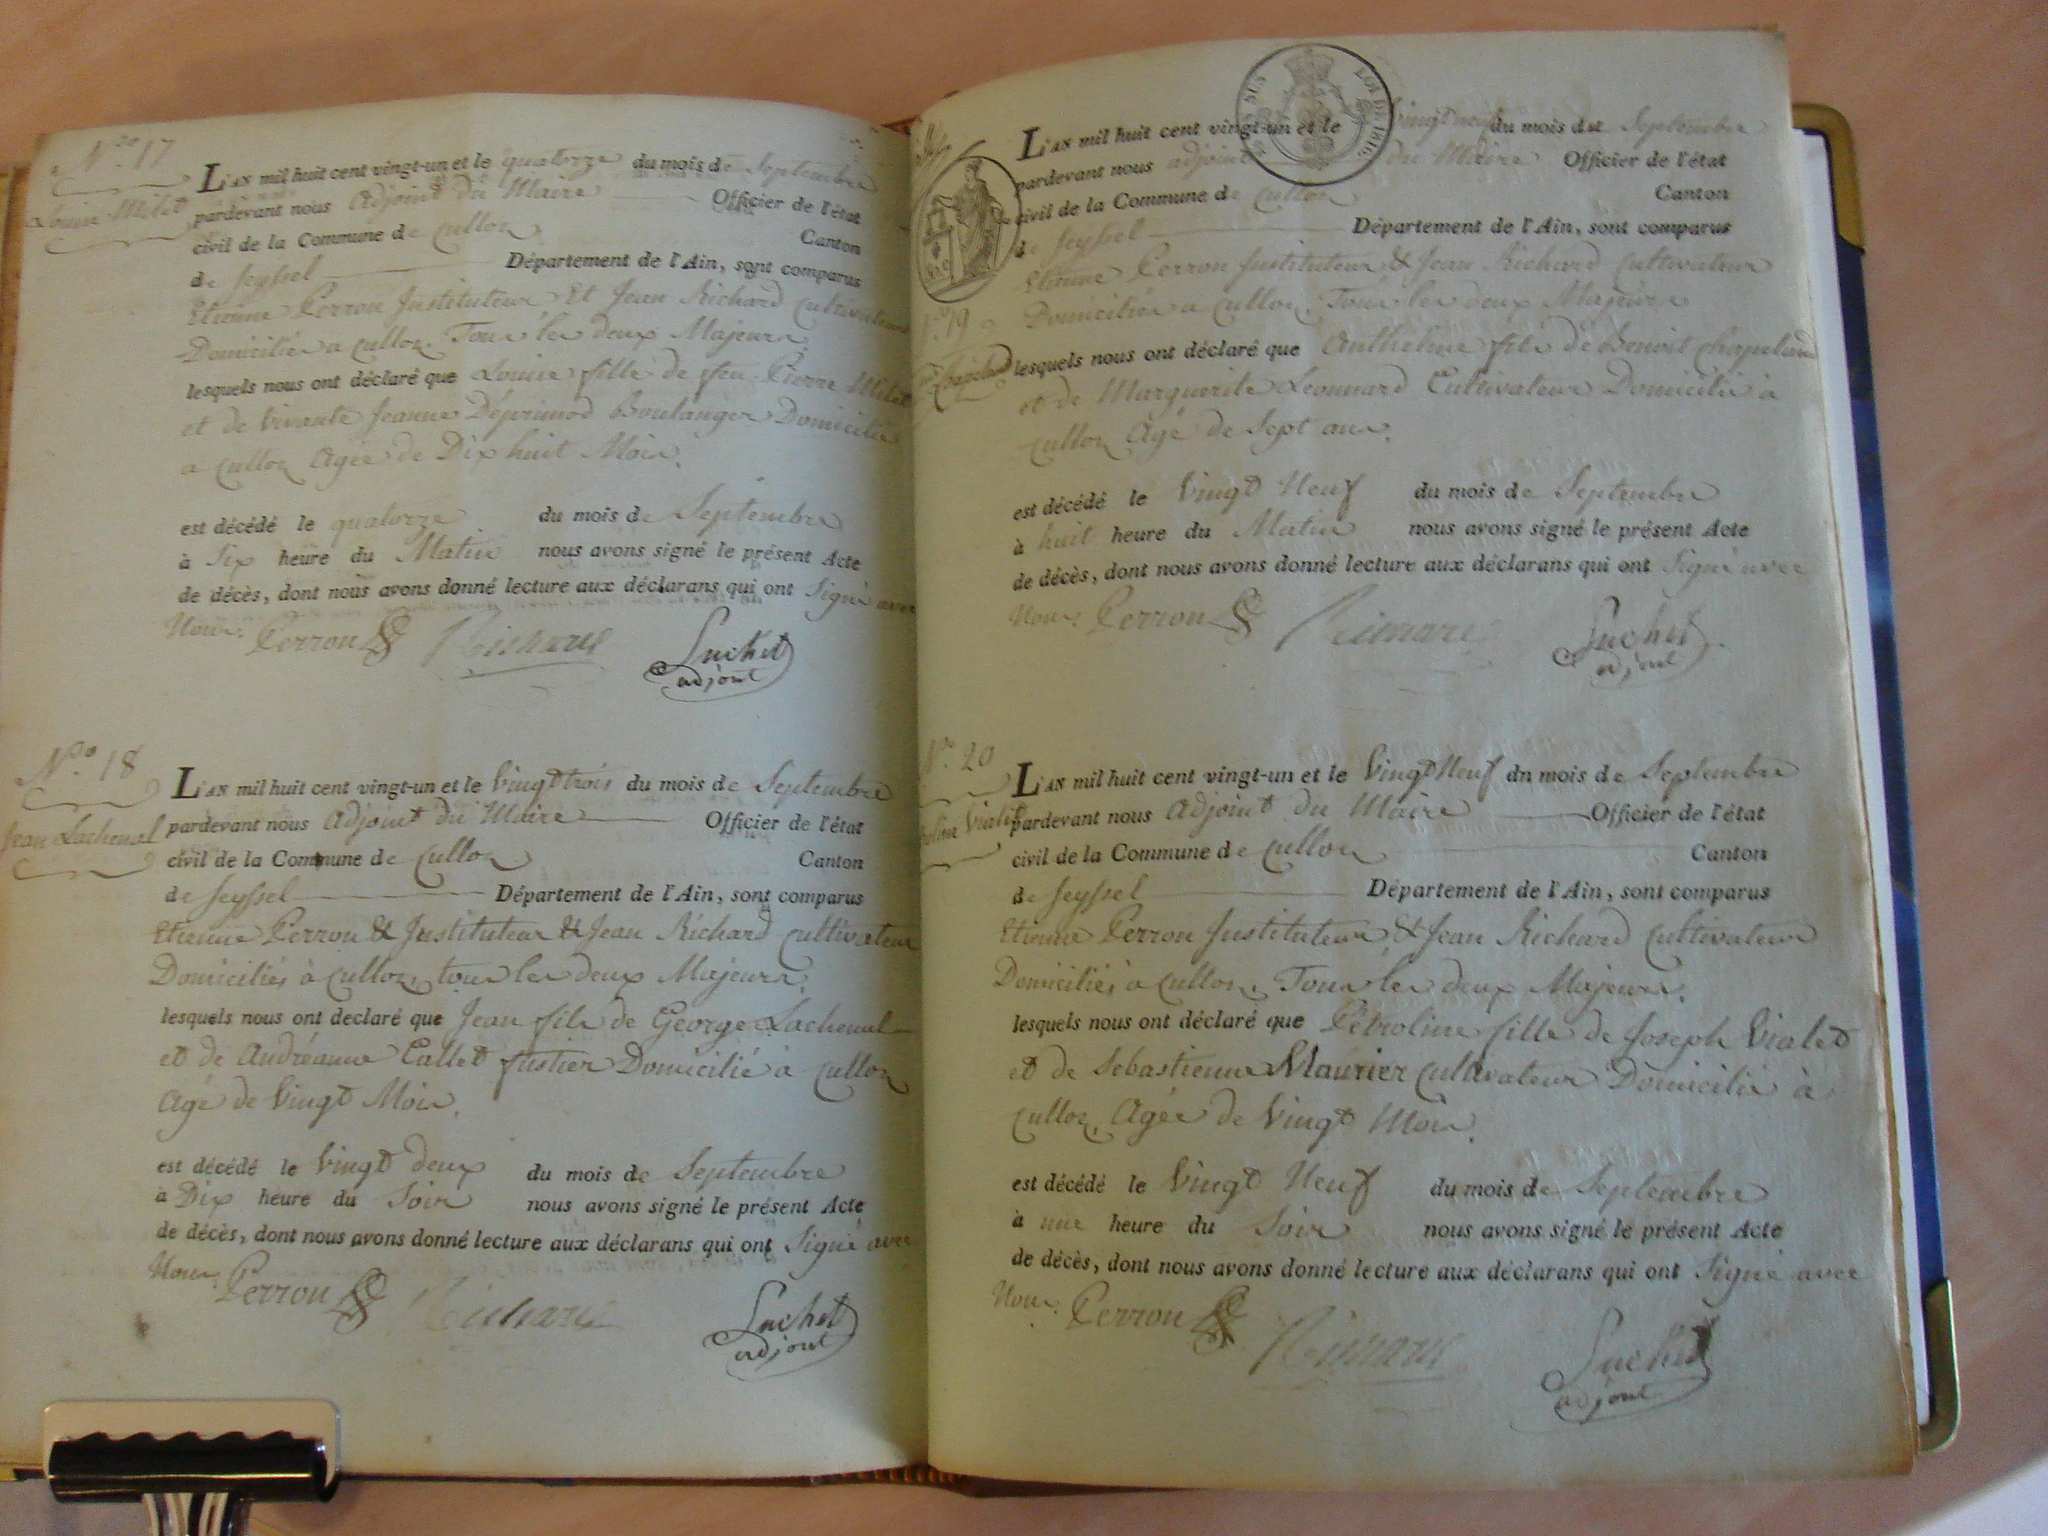 N.ro 17
Louise Milet
L'AN mil huit cent vingt-un et le quatorze du mois de Septembre
pardevant nous Adjoint du Maire Officier de l'état
civil de la Commune de Culloz Canton
de Seyssel Département de l'Ain, sont comparus
Etienne Perron Instituteur Et Jean Richard Cultivateur
Domiciliés a Culloz. Tous les deux Majeurs.
lesquels nous ont déclaré que Louise fille de feu Pierre Milet
et de vivante Jeanne Déprimod Boulanger Domicilié
a Culloz Agée de Dix huit Mois.
est décédé le quatorze du mois de Septembre
à Six heure du Matin nous avons signé le présent Acte
de décès, dont nous avons donné lecture aux déclarans qui ont Signé avec
Nous. Perron Richard Suchet
adjoint
N.ro 18
Jean Lachenal
L'AN mil huit cent vingt-un et le Vingt trois du mois de Septembre
pardevant nous Adjoint du Maire Officier de l'état
civil de la Commune de Culloz Canton
de Seyssel Département de l'Ain, sont comparus
Etienne Perron & Instituteur & Jean Richard Cultivateur
Domiciliés à Culloz, tous les deux Majeurs.
lesquels nous ont declaré que Jean fils de George Lachenal
et de Andréanne Callet fustier Domicilié à Culloz
Agé de Vingt Mois.
est décédé le Vingt deux du mois de Septembre
à Dix heure du Soir nous avons signé le présent Acte
de décès, dont nous avons donné lecture aux déclarans qui ont Signé avec
Nous. Perron Richard Suchet
adjoint
LOI DE 1816
N.ro 19
L'AN mil huit cent vingt-un et le Vingt neuf du mois de Septembre
pardevant nous adjoint du Maire Officier de l'état
civil de la Commune de Culloz Canton
de Seyssel Département de l'Ain, sont comparus
Etienne Perron Instituteur & Jean Richard Cultivateur
Domiciliés a Culloz. Tous les deux Majeurs
lesquels nous ont déclaré que Anthelme fils de Benoit Chapeland
et de Marguerite Leonnard Cultivateur Domicilié à
Culloz Agé de Sept ans.
est décédé le Vingt Neuf du mois de Septembre
à huit heure du Matin nous avons signé le présent Acte
de décès, dont nous avons donné lecture aux déclarans qui ont Signé avec
Nous. Perron Richard Suchet
adjoint
N.ro 20
Vialet
L'AN mil huit cent vingt-un et le Vingt Neuf du mois de Septembre
pardevant nous Adjoint du Maire Officier de l'état
civil de la Commune de Culloz Canton
de Seyssel Département de l'Ain, sont comparus
Etienne Perron Instituteur & Jean Richard Cultivateur
Domiciliés à Culloz, Tous les deux Majeurs.
lesquels nous ont déclaré que Pétroline fille de Joseph Vialet
et de Sebastienne Maurier Cultivateur Domicilié à
Culloz, Agée de Vingt Mois.
est décédé le Vingt Neuf du mois de Septembre
à une heure du Soir nous avons signé le présent Acte
de décès, dont nous avons donné lecture aux déclarans qui ont Signé avec
Nous. Perron Richard Suchet
adjoint